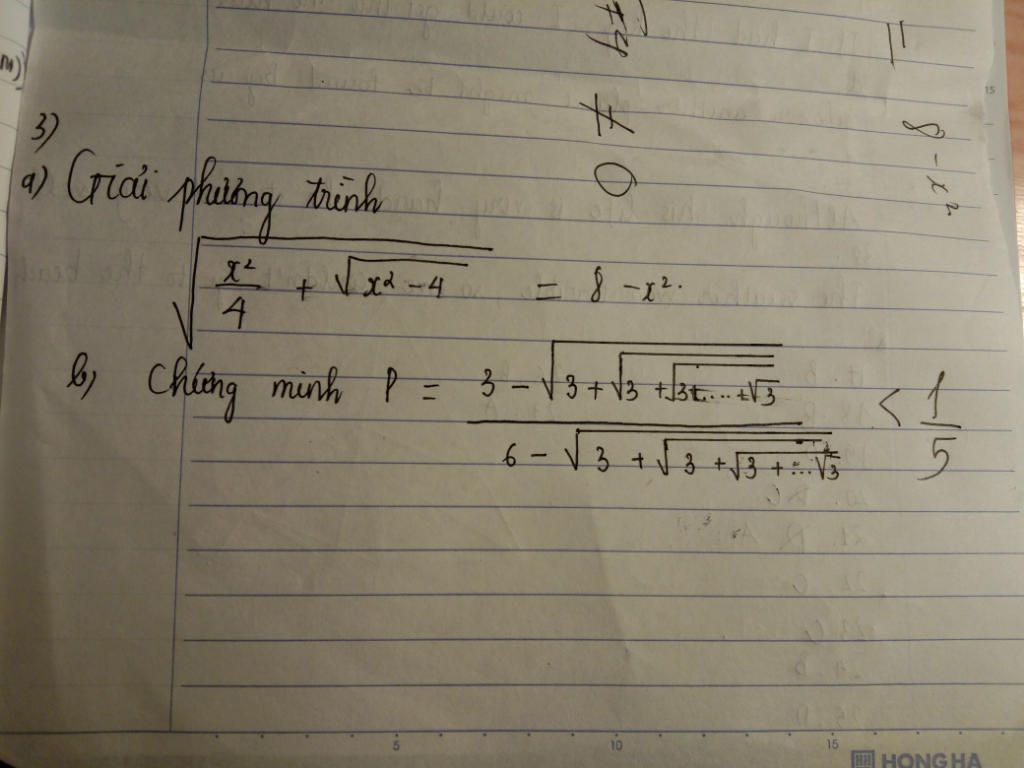 3)
a) Giải phương trình
√(x²/4 + √(x² - 4)) = 8 - x².
b) Chứng minh P = (3 - √(3 + √(3 + √(3 + ... + √3)))) / (6 - √(3 + √(3 + √(3 + ... √3)))) < 1/5
≠ 0
= 8 - x²
5 10 15
HONG HA